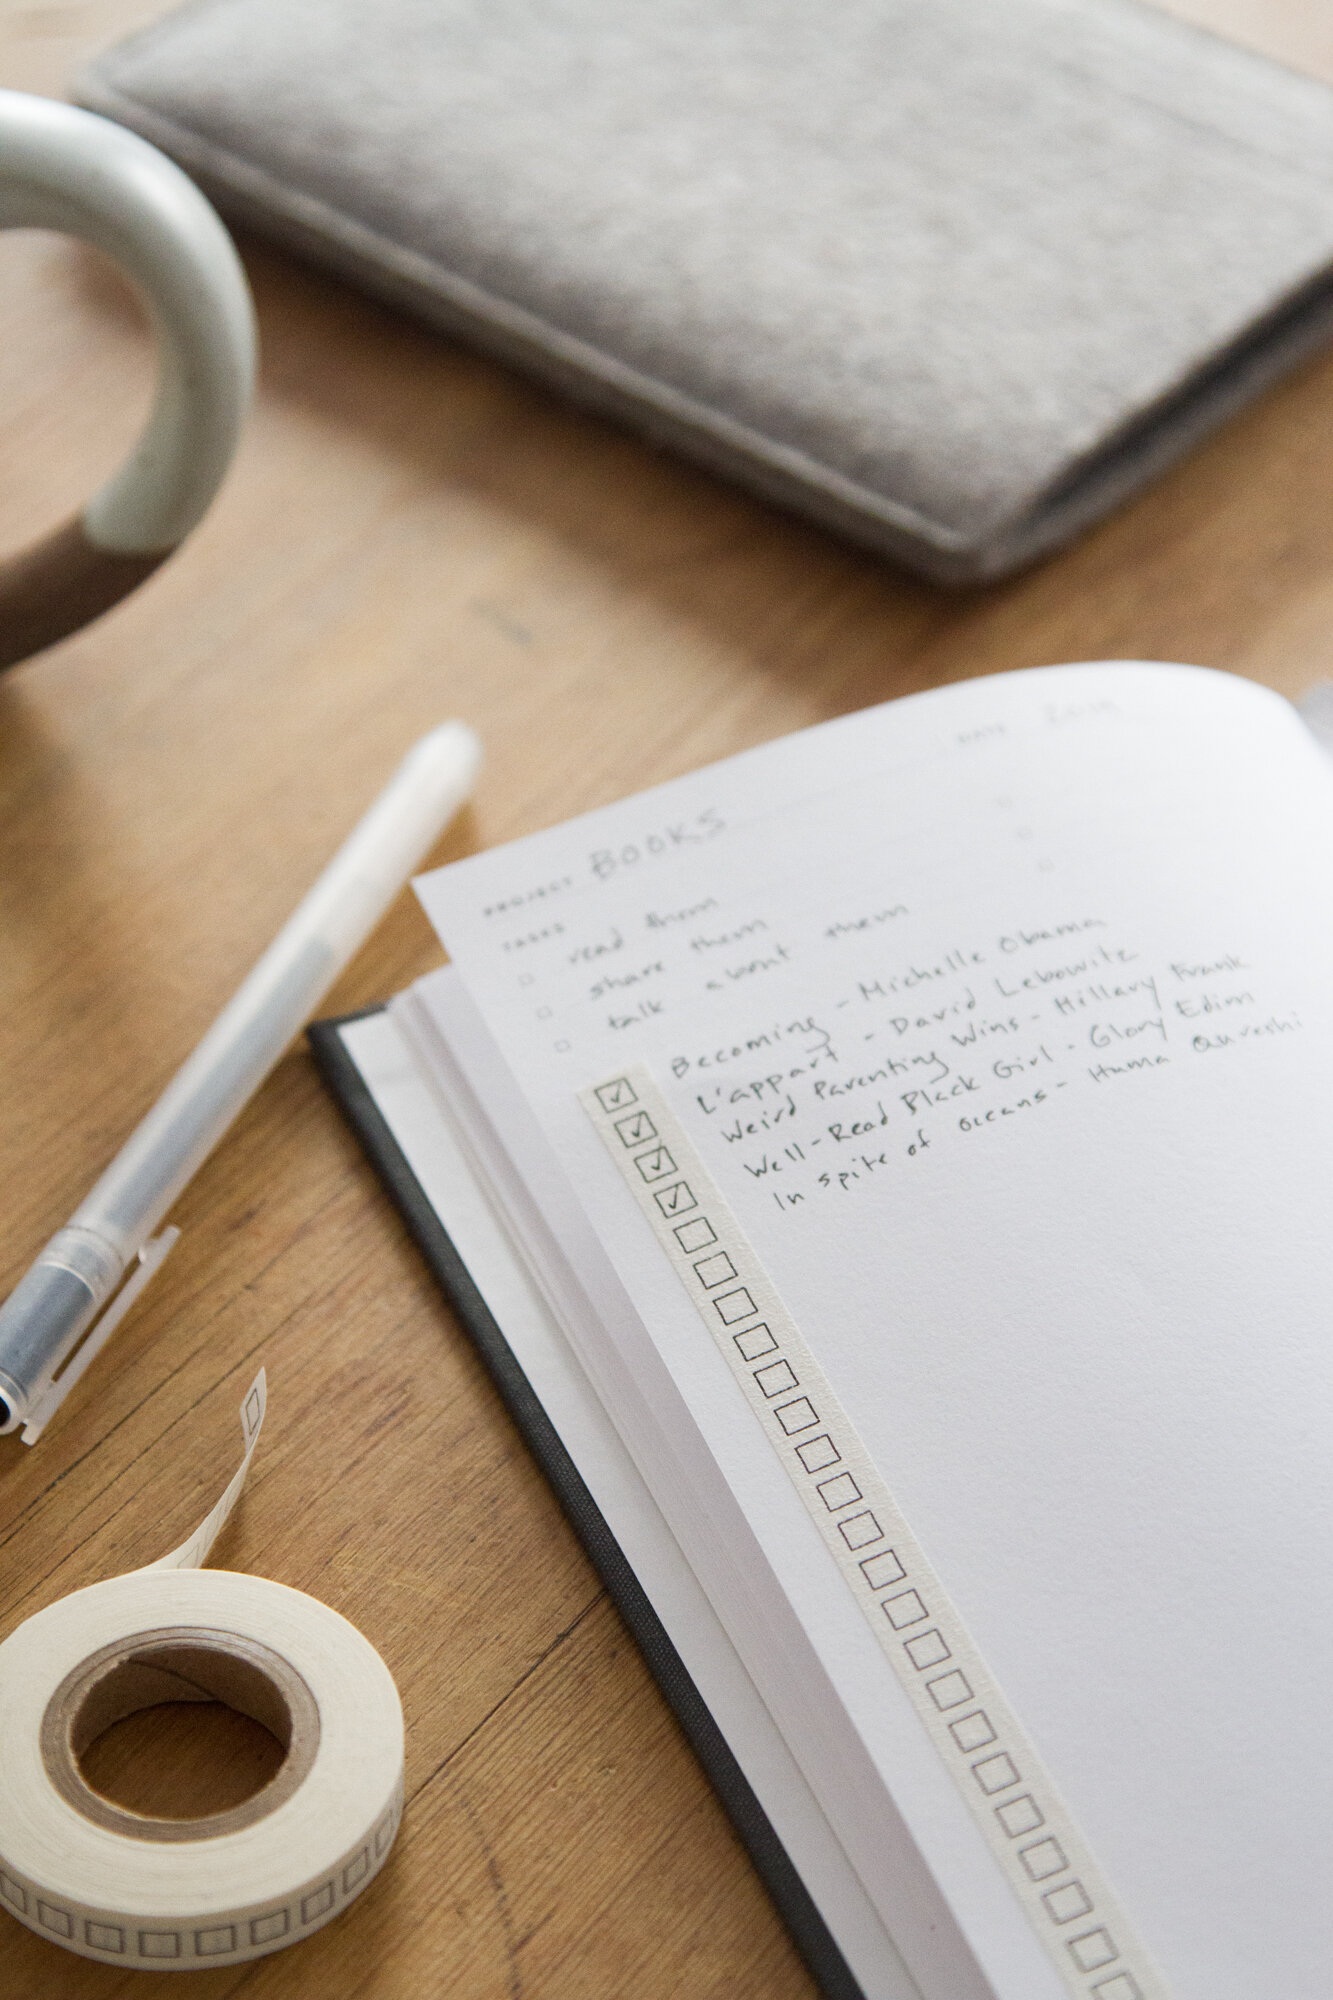 PROJECT BOOKS DATE 2019
TASKS
read them
share them
talk about them
Becoming - Michelle Obama
L'appart - David Lebowitz
Weird Parenting Wins - Hillary Frank
Well-Read Black Girl - Glory Edim
In spite of oceans - Huma Qureshi